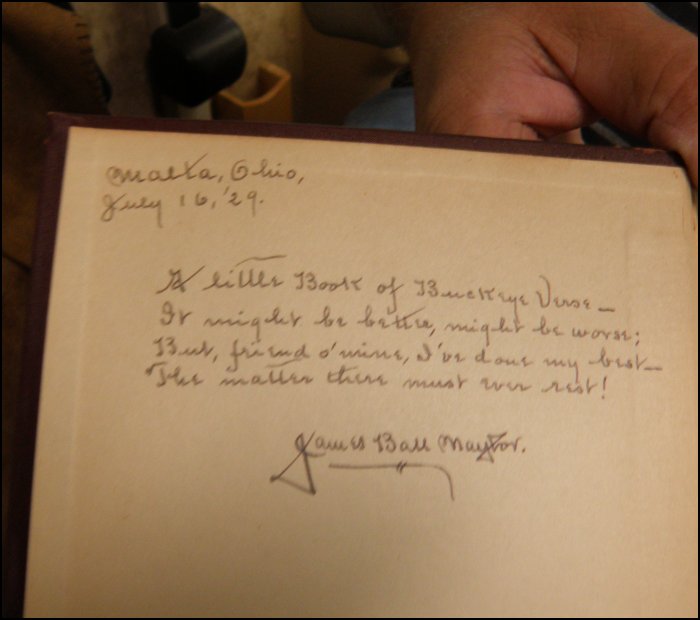 Malta, Ohio,
July 16, '29.
A little Book of Buckeye Verse—
It might be better, might be worse;
But, friend o' mine, I've done my best—
The matter there must ever rest!
James Ball Naylor.